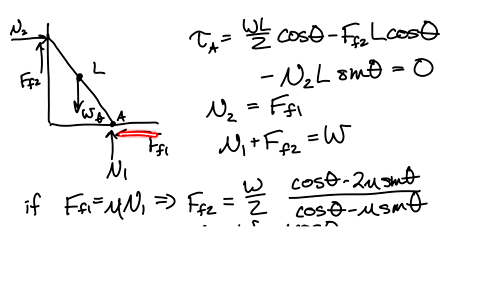 N₂
F_f2
L
W
θ
A
F_f1
N₁
τ_A = WL/2 cosθ - F_f2 L cosθ
- N₂ L sinθ = 0
N₂ = F_f1
N₁ + F_f2 = W
if F_f1 = μN₁ ⇒ F_f2 = W/2 (cosθ - 2μ sinθ)/(cosθ - μ sinθ)